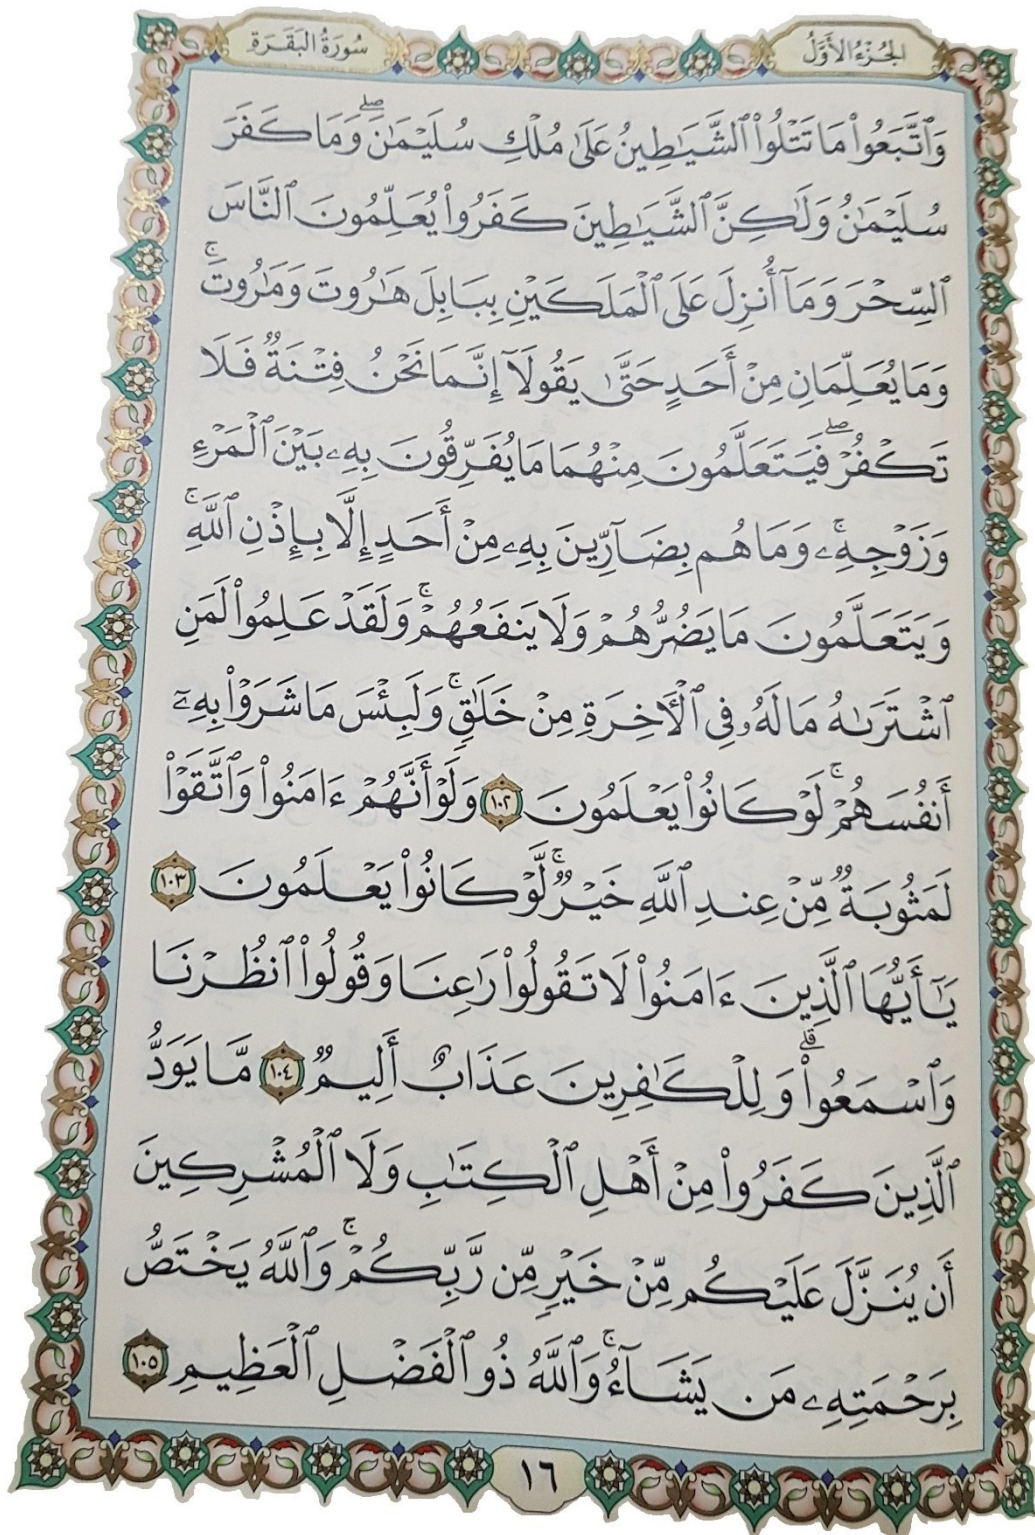 الجُزْءُ الأَوَّلُ
سُورَةُ البَقَرَةِ
وَٱتَّبَعُوا۟ مَا تَتْلُوا۟ ٱلشَّيَـٰطِينُ عَلَىٰ مُلْكِ سُلَيْمَـٰنَۖ وَمَا كَفَرَ
سُلَيْمَـٰنُ وَلَـٰكِنَّ ٱلشَّيَـٰطِينَ كَفَرُوا۟ يُعَلِّمُونَ ٱلنَّاسَ
ٱلسِّحْرَ وَمَآ أُنزِلَ عَلَى ٱلْمَلَكَيْنِ بِبَابِلَ هَـٰرُوتَ وَمَـٰرُوتَۚ
وَمَا يُعَلِّمَانِ مِنْ أَحَدٍ حَتَّىٰ يَقُولَآ إِنَّمَا نَحْنُ فِتْنَةٌ فَلَا
تَكْفُرْۖ فَيَتَعَلَّمُونَ مِنْهُمَا مَا يُفَرِّقُونَ بِهِۦ بَيْنَ ٱلْمَرْءِ
وَزَوْجِهِۦۚ وَمَا هُم بِضَآرِّينَ بِهِۦ مِنْ أَحَدٍ إِلَّا بِإِذْنِ ٱللَّهِۚ
وَيَتَعَلَّمُونَ مَا يَضُرُّهُمْ وَلَا يَنفَعُهُمْۚ وَلَقَدْ عَلِمُوا۟ لَمَنِ
ٱشْتَرَىٰهُ مَا لَهُۥ فِى ٱلْـَٔاخِرَةِ مِنْ خَلَـٰقٍۚ وَلَبِئْسَ مَا شَرَوْا۟ بِهِۦٓ
أَنفُسَهُمْۚ لَوْ كَانُوا۟ يَعْلَمُونَ ١٠٢ وَلَوْ أَنَّهُمْ ءَامَنُوا۟ وَٱتَّقَوْا۟
لَمَثُوبَةٌ مِّنْ عِندِ ٱللَّهِ خَيْرٌۚ لَّوْ كَانُوا۟ يَعْلَمُونَ ١٠٣
يَـٰٓأَيُّهَا ٱلَّذِينَ ءَامَنُوا۟ لَا تَقُولُوا۟ رَٰعِنَا وَقُولُوا۟ ٱنظُرْنَا
وَٱسْمَعُوا۟ۗ وَلِلْكَـٰفِرِينَ عَذَابٌ أَلِيمٌ ١٠٤ مَّا يَوَدُّ
ٱلَّذِينَ كَفَرُوا۟ مِنْ أَهْلِ ٱلْكِتَـٰبِ وَلَا ٱلْمُشْرِكِينَ
أَن يُنَزَّلَ عَلَيْكُم مِّنْ خَيْرٍ مِّن رَّبِّكُمْۚ وَٱللَّهُ يَخْتَصُّ
بِرَحْمَتِهِۦ مَن يَشَآءُۚ وَٱللَّهُ ذُو ٱلْفَضْلِ ٱلْعَظِيمِ ١٠٥
١٦